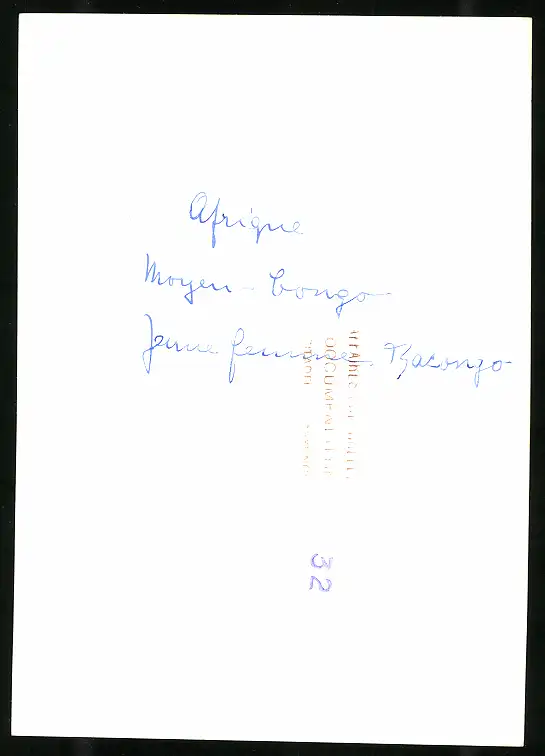 Afrique
Moyen-Congo
Jeune femme Bacongo
DOCUMENTATION
32